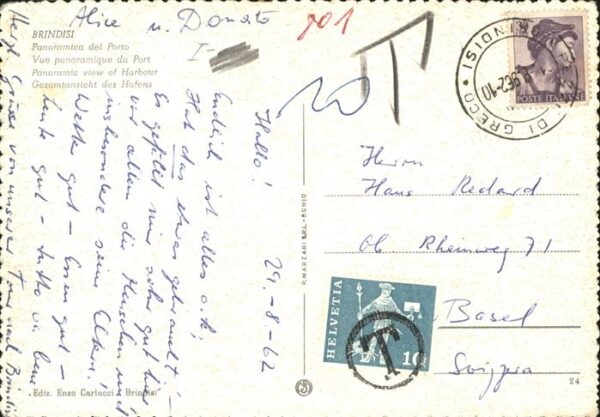 Alice u. Donato
I-
701
T
BRINDISI
Panoramica del Porto
Vue panoramique du Port
Panoramic view of Harbour
Gezamtansicht des Hafens
Hallo! 29.-8.-62
Endlich ist alles o.k.;
Hat das etwas gebraucht -
Es gefällt mir sehr gut hier
vor allem die Menschen und
insbesondere seine Eltern!
Wetter gut - Essen gut -
Leute gut - tutto va bene
Herzl. Grüsse von unserer nach Brindisi
P. MARZARI S.R.L. - SCHIO
POSTE ITALIANE
DI GRECO
BRINDISI
Herrn
Hans Redard
Ob. Rheinweg 71
Basel
Svizzera
HELVETIA
10
T
24
"Ediz. Enzo Carlucci - Brindisi"